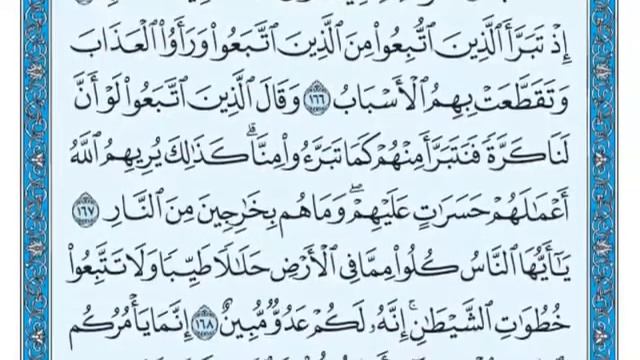 إِذْ تَبَرَّأَ ٱلَّذِينَ ٱتُّبِعُوا۟ مِنَ ٱلَّذِينَ ٱتَّبَعُوا۟ وَرَأَوُا۟ ٱلْعَذَابَ
وَتَقَطَّعَتْ بِهِمُ ٱلْأَسْبَابُ ١٦٦ وَقَالَ ٱلَّذِينَ ٱتَّبَعُوا۟ لَوْ أَنَّ
لَنَا كَرَّةً فَنَتَبَرَّأَ مِنْهُمْ كَمَا تَبَرَّءُوا۟ مِنَّا ۗ كَذَٰلِكَ يُرِيهِمُ ٱللَّهُ
أَعْمَـٰلَهُمْ حَسَرَٰتٍ عَلَيْهِمْ ۖ وَمَا هُم بِخَـٰرِجِينَ مِنَ ٱلنَّارِ ١٦٧
يَـٰٓأَيُّهَا ٱلنَّاسُ كُلُوا۟ مِمَّا فِى ٱلْأَرْضِ حَلَـٰلًا طَيِّبًا وَلَا تَتَّبِعُوا۟
خُطُوَٰتِ ٱلشَّيْطَـٰنِ ۚ إِنَّهُۥ لَكُمْ عَدُوٌّ مُّبِينٌ ١٦٨ إِنَّمَا يَأْمُرُكُم